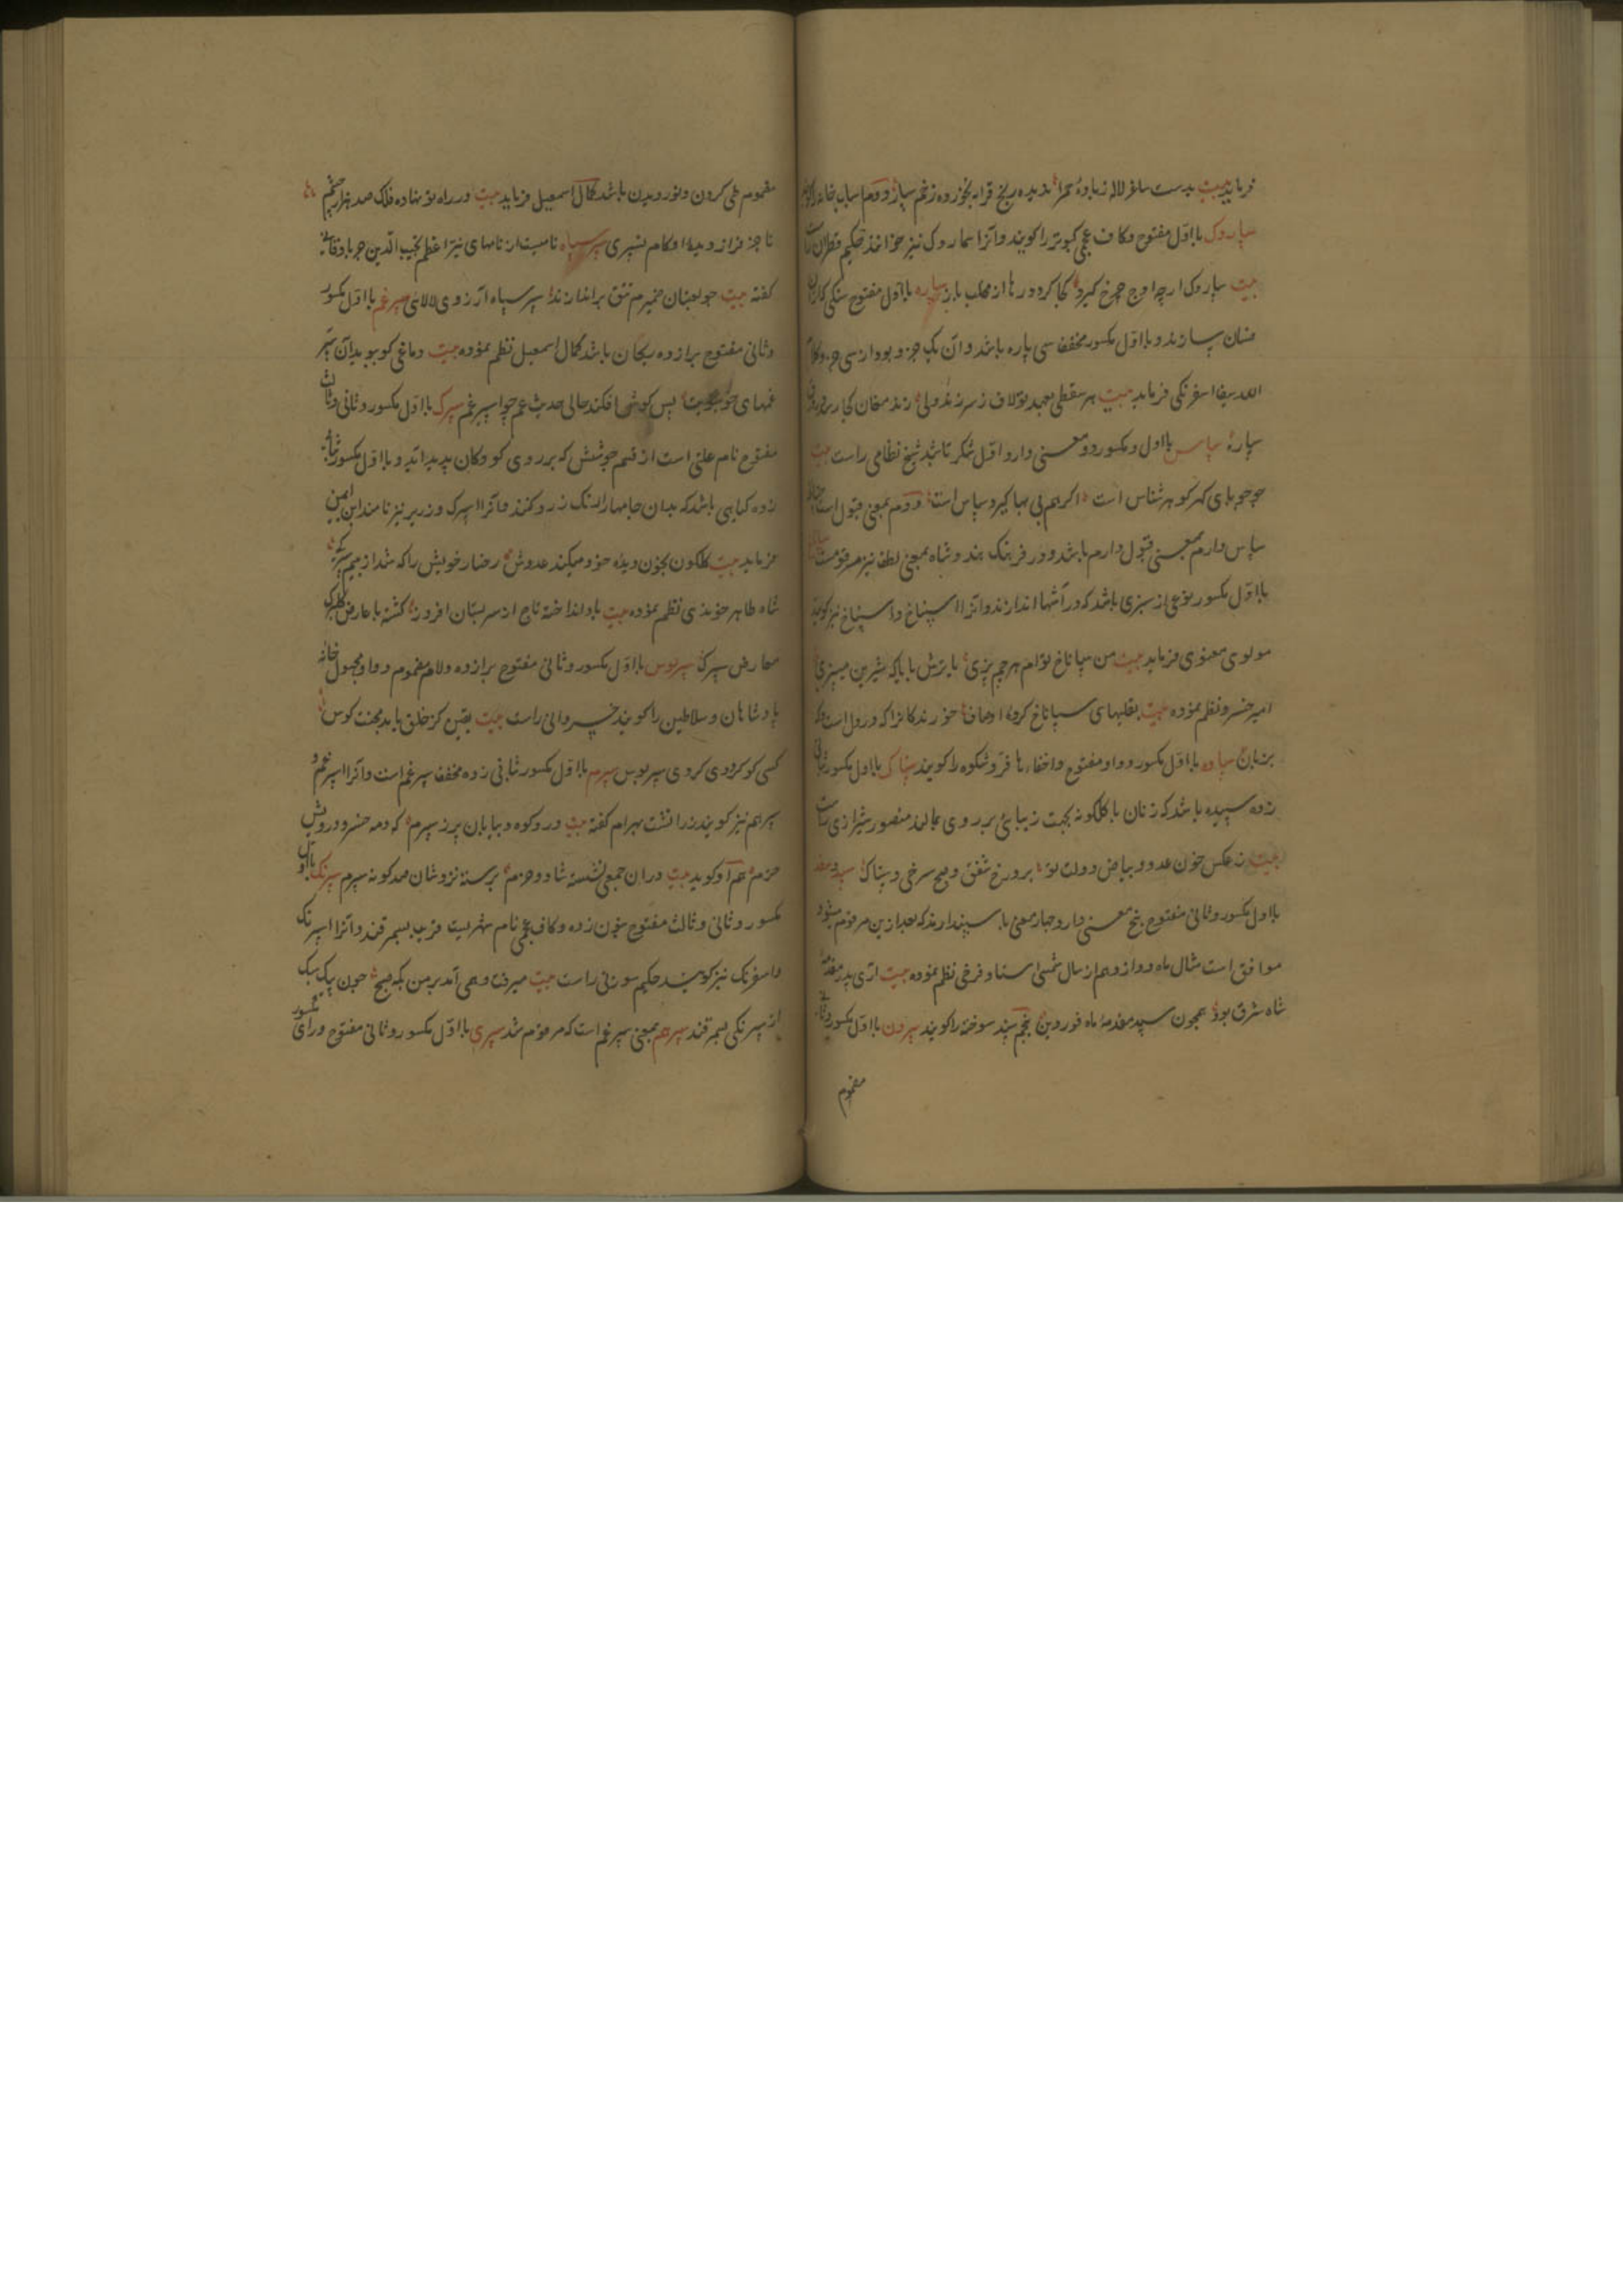 فرماید بیت بدست ساغر لاله ز بادهٔ حمرا ندیده رنج قرابه نخورده زخم سپار دوم اسباب خانه را گویند
سپاروک با اول مفتوح و کاف عجمی کبوتر را گویند و آنرا سماروک نیز خوانند حکیم قطران راست
بیت سپاروک ارچه اوج چرخ گیرد کجا گردد رها از مخلب باز سپاره با اول مفتوح سنگی که از آن
فسان سازند و با اول مکسور مخفف سی پاره باشد و آن یک جزو بود از سی جزو کلام
الله سیف اسفرنگی فرماید بیت هر سقطی بعهد تو لاف ز سر زند ولی زند مغان کجا رسد
سپاره سپاس با اول مکسور دو معنی دارد اول شکر باشد شیخ نظامی راست بیت
جو جو بای گهر گوهر شناس است اگر هم بی بها گیرد سپاس است دوم بمعنی قبول است چنانکه
سپاس دارم بمعنی قبول دارم باشد و در فرهنگ هندوشاه بمعنی لطف نیز مرقومست
با اول مکسور نوعی از سبزی باشد که در آشها اندازند و آنرا اسپناخ و اسپناج نیز گویند
مولوی معنوی فرماید بیت من سپاناخ توام هر چم پزی یا ترش با یا که شیرین میپزی
امیر خسرو نظم نموده بیت بقلیهای سپاناخ کرده اوصاف خورند کانرا که در دل است
سپاوه با اول مکسور و واو مفتوح و اخفاء ها فر و شکوه را گویند سپتاک با اول مکسور بثانی
زده سپیده باشد که زنان با گلگونه بجهت زیبائی بر روی مالند منصور شیرازی راست
بیت ز عکس خون عدو و بیاض دولت تو برد رخ شفق و صبح سرخی و سپتاک سپند
با اول مکسور و ثانی مفتوح پنج معنی دارد چهار معنی با سپندار مذکه بعد ازین مرقوم میشود
موافق است مثال ماه دوازدهم از سال شمسی استاد فرخی نظم نموده بیت ازی پدر مقدمهٔ
شاه شرق بود همچون سپند مقدمهٔ ماه فرودین پنجم سپند سوخته را گویند سپردن با اول مکسور و ثانی
مضموم
مضموم طی کردن و نوردیدن باشد کمال اسمعیل فرماید بیت در راه تو نهاده فلک صد هزار چشم
تا جز فراز دیدهٔ او گام نسپری سپر سپاه نامیست از نامهای نیر اعظم نجیب الدین جرباذقانی
گفته بیت چو لعبتان ضمیرم تتق براندازند سپر سپاه از روی لالای سپرغم با اول مکسور
و ثانی مفتوح برا زده ریحان باشد کمال اسمعیل نظم نموده بیت دماغی کو ببوید آن سپر
غمهای پس گوش افکند حالی حدیث غم چو اسپرغم سپرک با اول مکسور و ثانی و ثالث
مفتوح نام علتی است از قسم جوشش که بر روی کودکان پدید آید و با اول مکسور بثانی
زده گیاهی باشد که بدان جامها را رنگ زرد کنند و آنرا اسپرک و زریر نیز نامند ابن یمین
فرماید بیت گلگون بخون دیده خود میکند عدوش رخسار خویش را که شد از بیم سپرک
شاه طاهر خوندی نظم نموده بیت باد انداخته تاج از سر بستان افروز گشته با عارض گلبرگ
معارض سپرک سپرلوس با اول مکسور و ثانی مفتوح برا زده و لام مضموم و واو مجهول خانه
پادشاهان و سلاطین را گویند خسروانی راست بیت یقین کز خلق باید بجهت کوس
کسی کو کردوی کردی سپرلوس سپرم با اول مکسور بثانی زده مخفف سپرغم است و آنرا اسپرغم و
سپرهم نیز گویند زراتشت بهرام گفته بیت در و کوه و بیابان پر ز سپرم که و مه خسرو و درویش
خرم هم او گوید بیت در ان جمعی نشسته شاد و خرم برسته نزدشان صد گونه سپرم سپرنگ با اول
مکسور و ثانی و ثالث مفتوح بنون زده و کاف عجمی نام شهریست قریب بسمرقند و آنرا اسپرنگ
و اسفرنگ نیز گویند حکیم سوزنی راست بیت میرفت و همی آمد بر من بگه صبح چون پیک سبک
از سپرنگی بسمرقند سپرهم بمعنی سپرغم است که مرقوم شد سپری با اول مکسور و ثانی مفتوح و رای مکسور